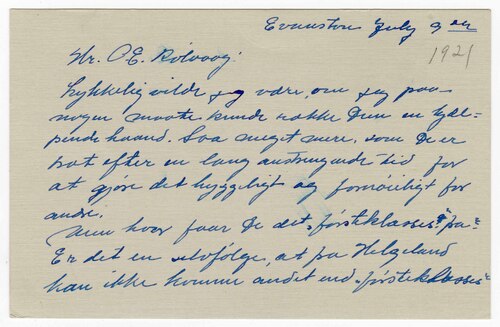 Evanston July 9de
1921
Mr. O E. Rölvaag:
Lykkelig vilde jeg være, om jeg paa
nogen maate kunde række Dem en hjæl-
pende haand. Saa meget mere, som De er
træt efter en lang anstrengende tid for
at gjøre det hyggeligt og fornøieligt for
andre.
Men hvor faar De det „førsteklasses" fra?
Er det en selvfølge, at fra Helgeland
kan ikke komme andet end „førsteklasses"